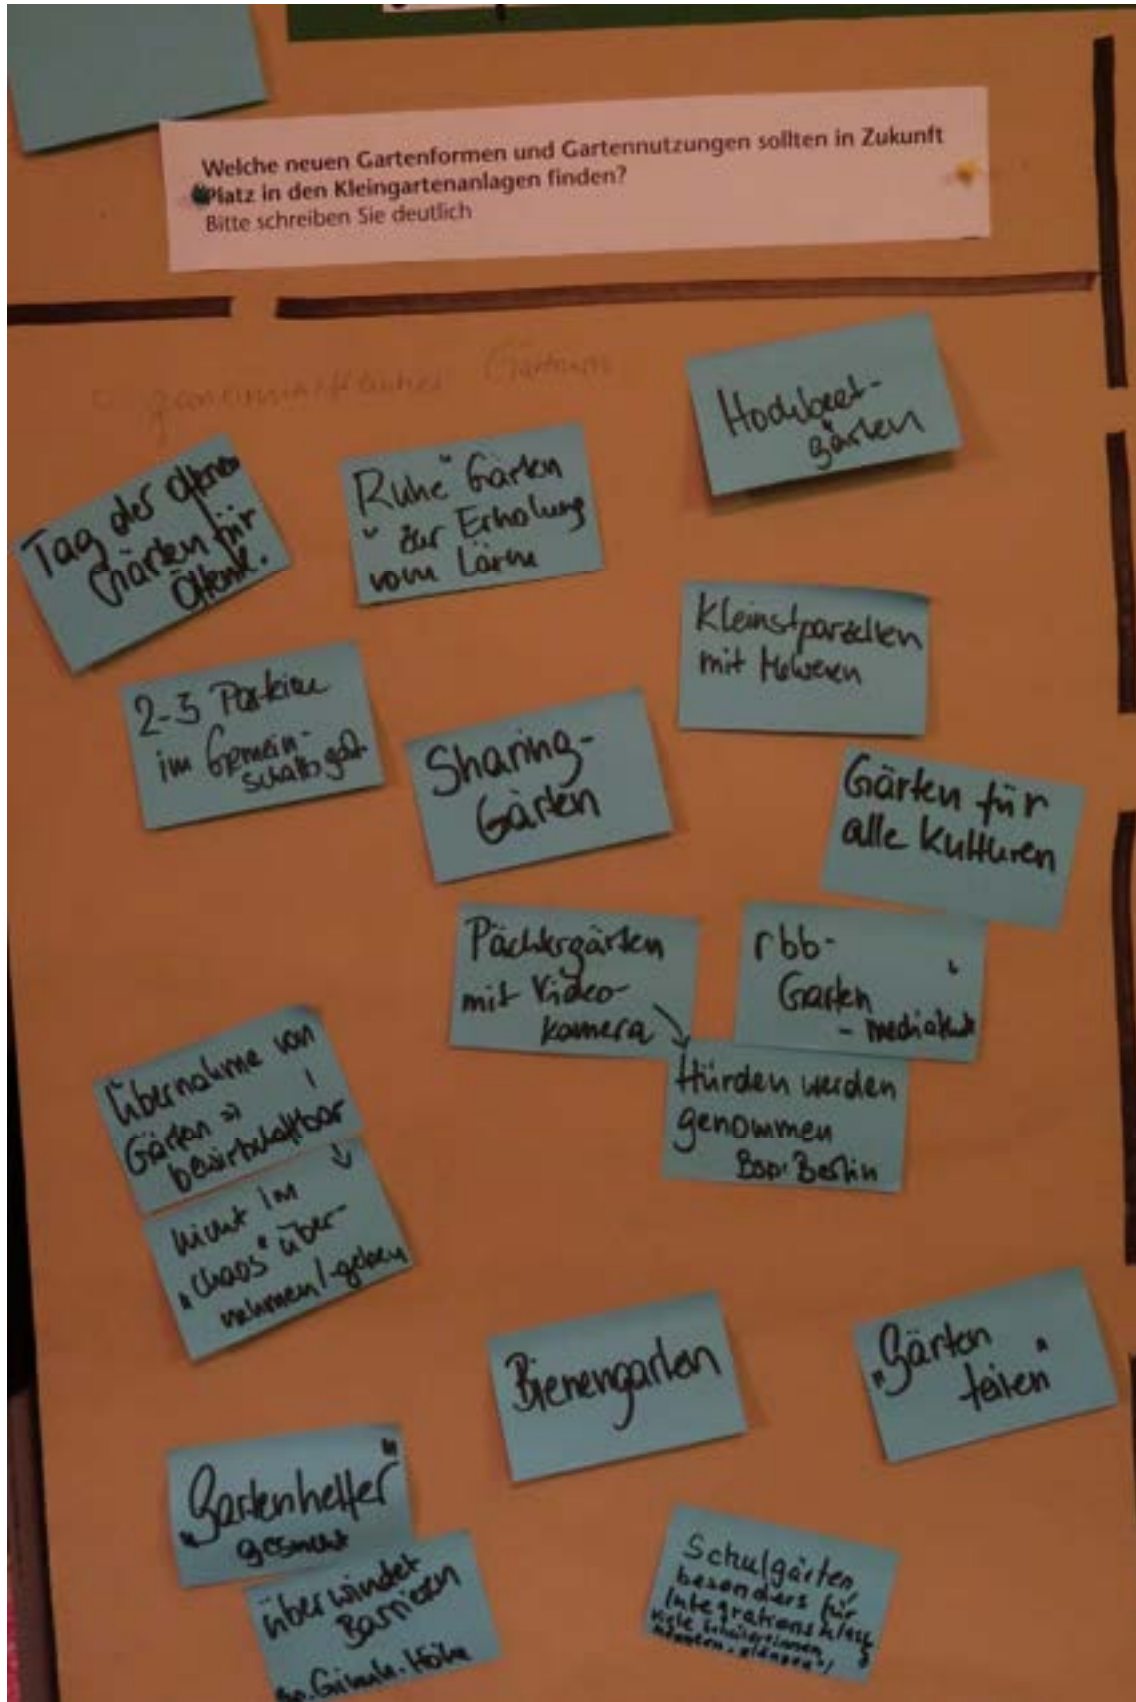 Welche neuen Gartenformen und Gartennutzungen sollten in Zukunft
Platz in den Kleingartenanlagen finden?
Bitte schreiben Sie deutlich
Hochbeet-
gärten
Tag der offenen
Gärten für
Öffentl.
"Ruhe" Gärten
zur Erholung
vom Lärm
Kleinstparzellen
mit
2-3 Parteien
im Gemein-
schaftsgart.
Sharing-
Gärten
Gärten für
alle Kulturen
Pächtergärten
mit Video-
kamera
rbb-
Garten
Hürden werden
genommen
Bsp. Berlin
Übernahme von
Gärten
bewirtschaftbar
nicht im
"Chaos" über-
nehmen/-geben
Bienengarten
"Gärten
teilen"
"Gartenhelfer"
gesucht
überwindet
Barrieren
Höhe
Schulgärten,
besonders für
Integrationsklass.
viele Schüler/innen